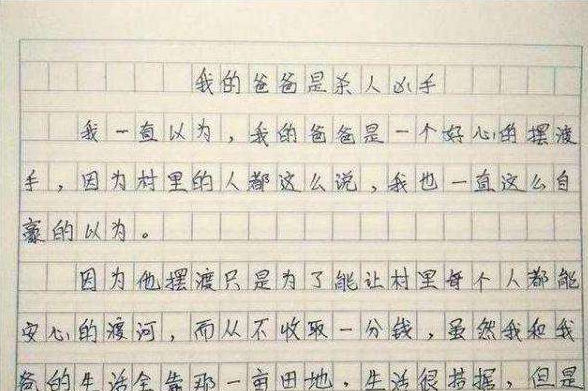 我的爸爸是杀人凶手
我一直以为，我的爸爸是一个好心的摆渡
手，因为村里的人都这么说，我也一直这么自
豪的以为。
因为他摆渡只是为了能让村里每个人都能
安心的渡河，而从不收取一分钱，虽然我和我
爸的生活全靠那一亩田地，生活很拮据，但是